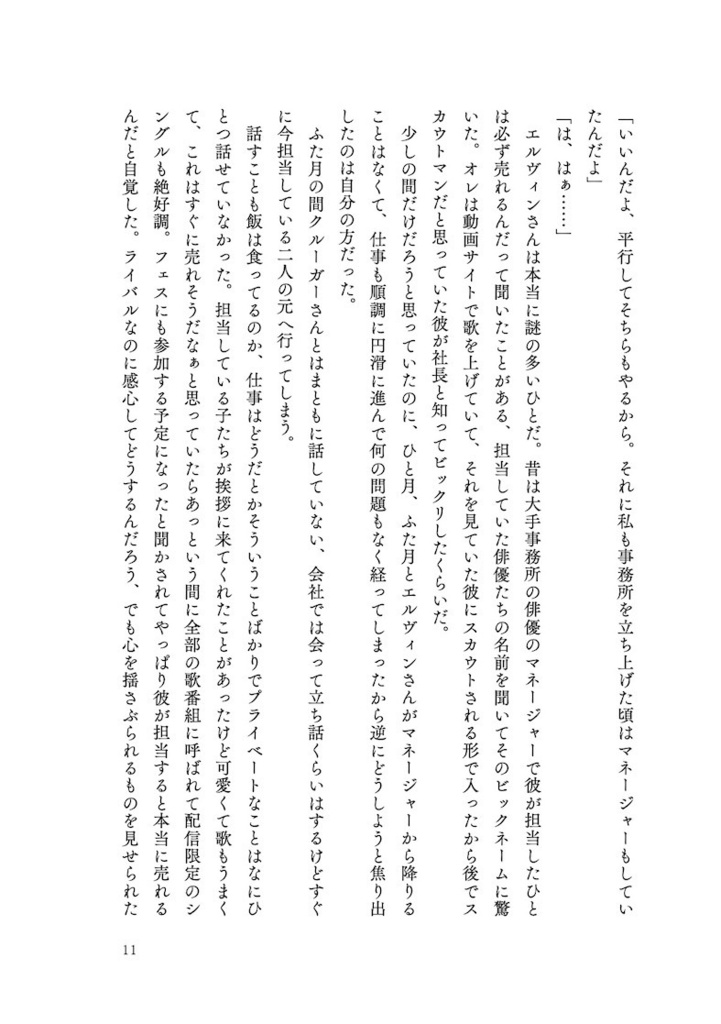 「いいんだよ、平行してそちらもやるから。それに私も事務所を立ち上げた頃はマネージャーもしてい
たんだよ」
「は、はぁ……」
エルヴィンさんは本当に謎の多いひとだ。昔は大手事務所の俳優のマネージャーで彼が担当したひと
は必ず売れるんだって聞いたことがある、担当していた俳優たちの名前を聞いてそのビックネームに驚
いた。オレは動画サイトで歌を上げていて、それを見ていた彼にスカウトされる形で入ったから後でス
カウトマンだと思っていた彼が社長と知ってビックリしたくらいだ。
少しの間だけだろうと思っていたのに、ひと月、ふた月とエルヴィンさんがマネージャーから降りる
ことはなくて、仕事も順調に円滑に進んで何の問題もなく経ってしまったから逆にどうしようと焦り出
したのは自分の方だった。
ふた月の間クルーガーさんとはまともに話していない、会社では会って立ち話くらいはするけどすぐ
に今担当している二人の元へ行ってしまう。
話すことも飯は食ってるのか、仕事はどうだとかそういうことばかりでプライベートなことはなにひ
とつ話せていなかった。担当している子たちが挨拶に来てくれたことがあったけど可愛くて歌もうまく
て、これはすぐに売れそうだなぁと思っていたらあっという間に全部の歌番組に呼ばれて配信限定のシ
ングルも絶好調。フェスにも参加する予定になったと聞かされてやっぱり彼が担当すると本当に売れる
んだと自覚した。ライバルなのに感心してどうするんだろう、でも心を揺さぶられるものを見せられた
11